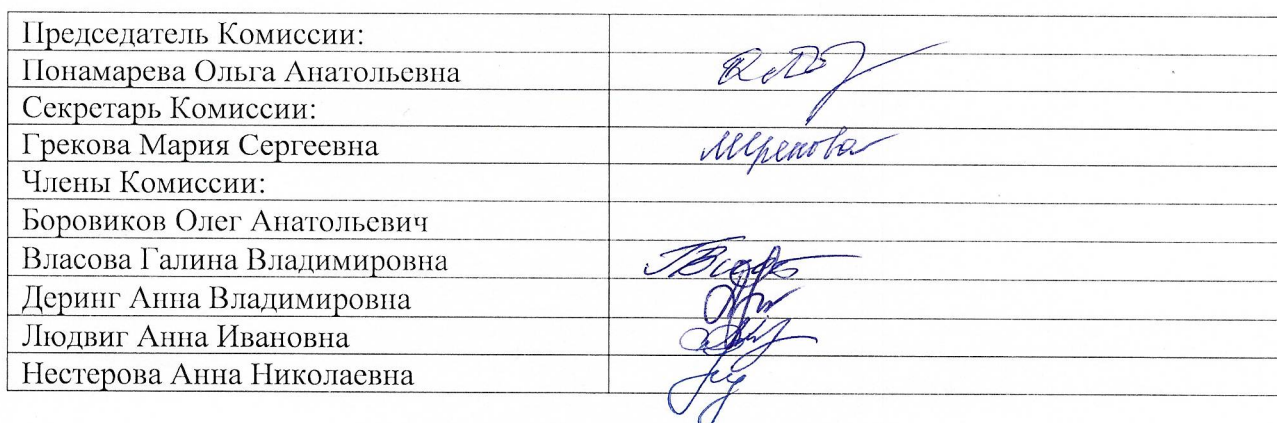 Председатель Комиссии:
Понамарева Ольга Анатольевна
Секретарь Комиссии:
Грекова Мария Сергеевна
Члены Комиссии:
Боровиков Олег Анатольевич
Власова Галина Владимировна
Деринг Анна Владимировна
Людвиг Анна Ивановна
Нестерова Анна Николаевна